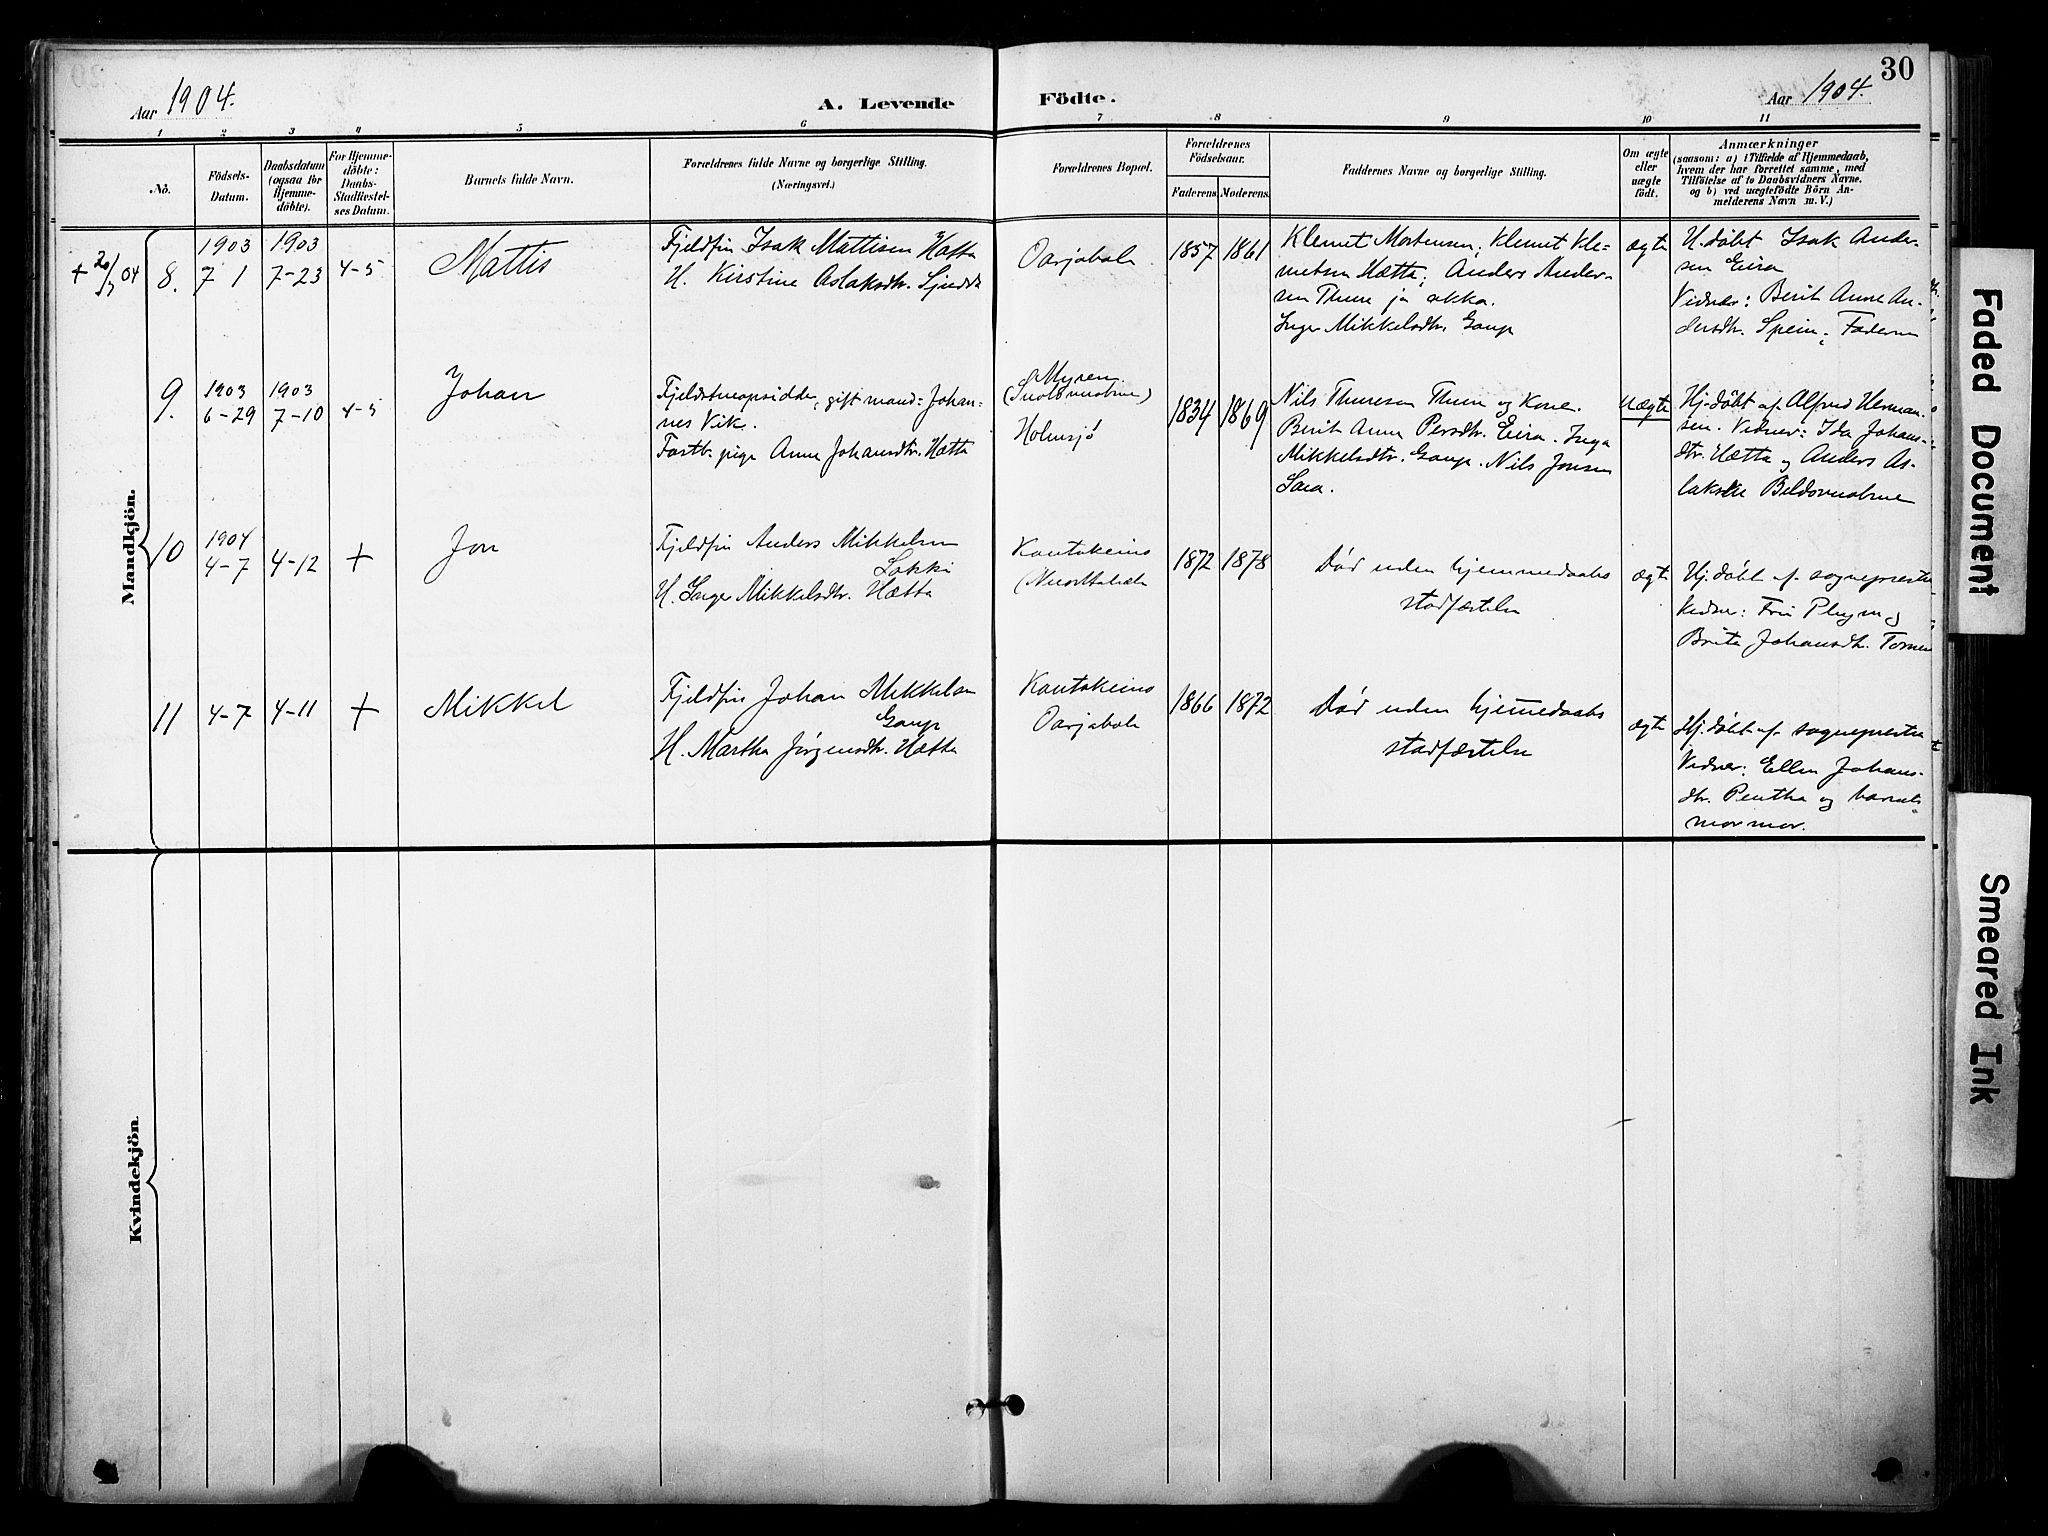 30
Aar 1904.
A. Levende Födte.
Aar 1904.
1 2 3 4 5 6 7 8 9 10 11
No.
Födsels-
Datum.
Daabsdatum
(ogsaa for
Hjemme-
döbte).
For Hjemme-
döbte:
Daabs-
Stadfæstel-
ses Datum.
Barnets fulde Navn.
Forældrenes fulde Navne og borgerlige Stilling.
(Næringsvei.)
Forældrenes Bopæl.
Forældrenes
Födselsaar.
Faderens
Moderens
Faddernes Navne og borgerlige Stilling.
Om ægte
eller
uægte
födt.
Anmærkninger
(saasom: a) i Tilfælde af Hjemmedaab,
hvem der har forrettet samme, med
Tilföielse af to Daabsvidners Navne.
og b) ved uægtefödte Börn An-
melderens Navn m. V.)
Mandkjön.
8.
1903
7 1
1903
7-23
4-5
Mattis
Fjeldfin Isak Mattisen Hætta
H. Kirstine Aslaksdtr.
Oarjabale
1857
1861
Klemet Mortensen, Klemet Kle-
metsen Hætta, Anders Ander-
sen Thure ja akka.
Inger Mikkelsdtr. Gaup
ægte
H.døbt Isak Ander-
sen Eira
Vidner: Berit Anne An-
dersdtr. Spein, Faderen
9.
1903
6-29
1903
7-10
4-5
Johan
Fjeldstueopsidder, gift mand: Johan-
nes Vik.
Fostb. pige Anne Johansdtr. Hætta
Myren
Holmsjø
1834
1869
Nils Thuresen Thuri og Kone
Berit Anna Persdtr. Eira. Inga
Mikkelsdtr. Gaup. Nils Jonsen
Sara.
Uægte
Hj.døbt af Alfred Herman-
sen. Vidner: Ida Johans-
dtr. Hætta og Anders As-
10
1904
4-7
4-12
+
Jon
Fjeldfin Anders Mikkelsen
Sokki
H. Inger Mikkelsdtr. Hætta
Kautokeino
1872
1878
Død uden hjemmedaabs
stadfæstelse
ægte
Hj.døbt af sognepresten
Vidner: Fru
Brita Johansdtr.
11
4-7
4-11
+
Mikkel
Fjeldfin Johan Mikkelsen
Gaup
H. Martha Jørgensdtr. Hætta
Kautokeino
Oarjabale
1866
1872
Død uden hjemmedaabs
stadfæstelse
ægte
Hj.døbt af sognepresten
Vidner: Ellen Johans-
dtr. Pentha og barnets
mormor.
Kvindekjön.
Faded Document
Smeared Ink